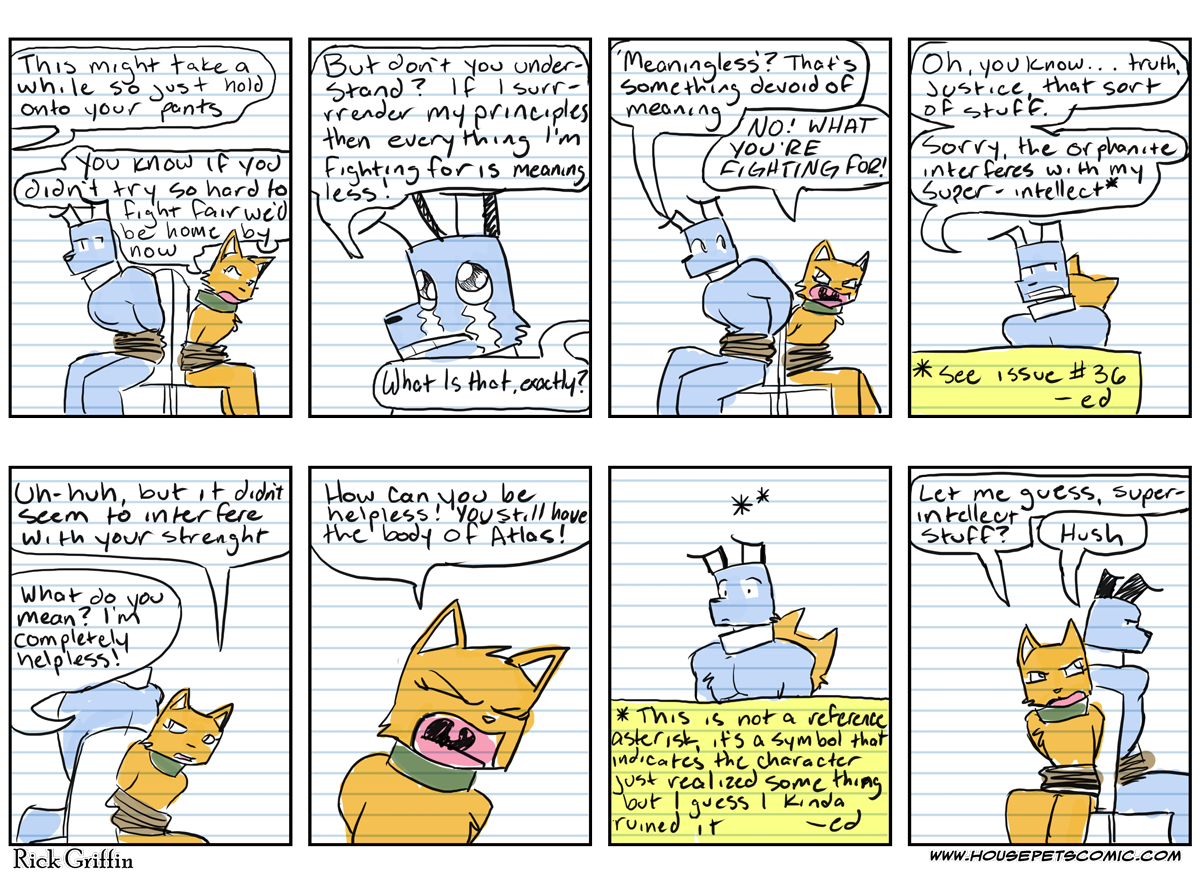 This might take a
while so just hold
onto your pants
You know if you
didn't try so hard to
fight fair we'd
be home by
now
But don't you under-
stand? If I surr-
rrender my principles
then everything I'm
fighting for is meaning
less!
What Is that, exactly?
'Meaningless'? That's
something devoid of
meaning
NO! WHAT
YOU'RE
FIGHTING FOR!
Oh, you know... truth,
justice, that sort
of stuff.
Sorry, the orphanite
interferes with my
super-intellect*
* See issue #36
- ed
Uh-huh, but it didn't
seem to interfere
with your strenght
What do you
mean? I'm
completely
helpless!
How can you be
helpless! You still have
the body of Atlas!
* *
* This is not a reference
asterisk, it's a symbol that
indicates the character
just realized some thing
but I guess I kinda
ruined it -ed
Let me guess, super-
intellect
stuff?
Hush
Rick Griffin
WWW.HOUSEPETSCOMIC.COM